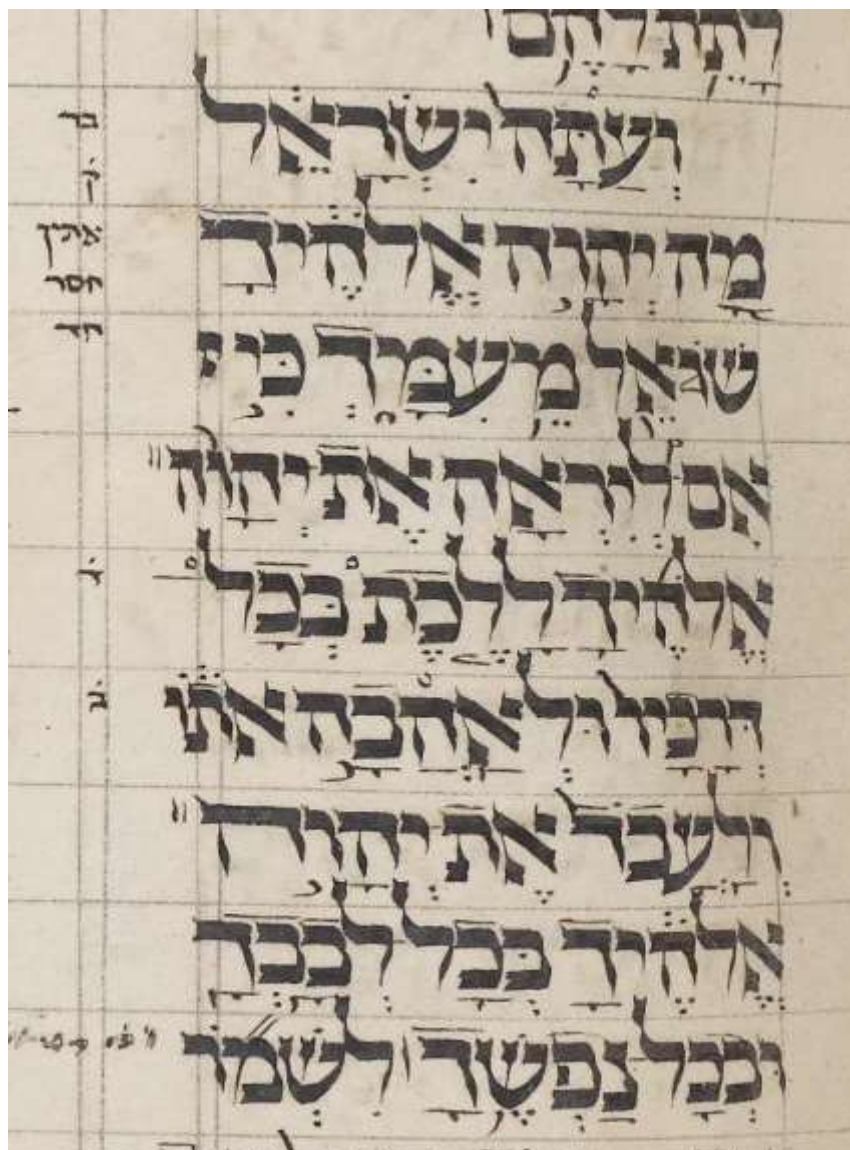 לָתֵת לָהֶם׃
וְעַתָּה יִשְׂרָאֵל
מָה יְהוָה אֱלֹהֶיךָ
שֹׁאֵל מֵעִמָּךְ כִּי
אִם לְיִרְאָה אֶת יְהוָה
אֱלֹהֶיךָ לָלֶכֶת בְּכָל
דְּרָכָיו וּלְאַהֲבָה אֹתוֹ
וְלַעֲבֹד אֶת יְהוָה
אֱלֹהֶיךָ בְּכָל לְבָבְךָ
וּבְכָל נַפְשֶׁךָ לִשְׁמֹר
חסר